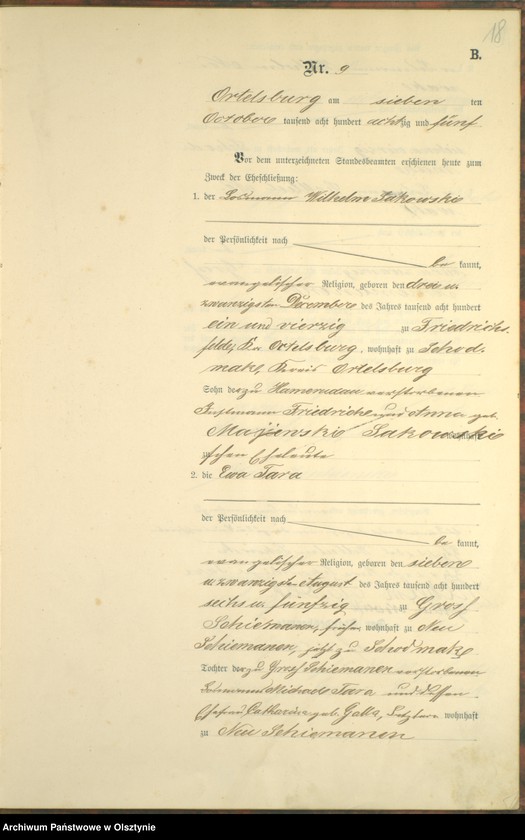 18
B.
Nr. 9
Ortelsburg am sieben ten
October tausend acht hundert achtzig und fünf
Vor dem unterzeichneten Standesbeamten erschienen heute zum
Zweck der Eheschließung:
1. der Losmann Wilhelm Sakowski
der Persönlichkeit nach
be kannt,
evangelischer Religion, geboren den drei u.
zwanzigsten December des Jahres tausend acht hundert
ein und vierzig zu Friedrichs-
felde, Kr. Ortelsburg, wohnhaft zu Schod-
mak, Kreis Ortelsburg
Sohn der zu verstorbenen
Friedrich und Anna geb.
Majewski Sakowski
schen Eheleute
2. die Ewa Tara
der Persönlichkeit nach
be kannt,
evangelischer Religion, geboren den sieben
u. zwanzigsten August des Jahres tausend acht hundert
sechs u. fünfzig zu Gross
Schiemanen, früher wohnhaft zu Neu
Schiemanen, jetzt zu Schodmak
Tochter der zu Gross Schiemanen verstorbenen
Losmanns Michael Tara und dessen
Ehefrau Catharina geb. Galla, Letztere wohnhaft
zu Neu Schiemanen
Archiwum Państwowe w Olsztynie